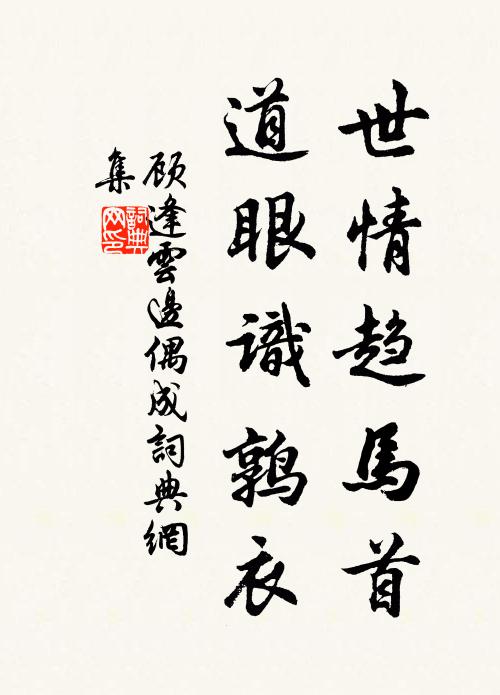 世情趋馬首
道眼識鹑衣
顾逢雲邊偶成詞典網
集
詞典
网印